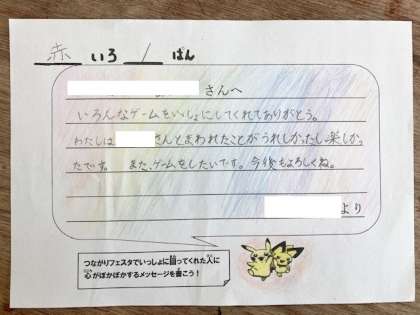 赤いろ 1 ぱん
さんへ
いろんなゲームをいっしょにしてくれてありがとう。
わたしは さんとまわれたことがうれしかったし楽しかっ
たです。 また、ゲームをしたいです。今後もよろしくね。
より
つながりフェスタでいっしょに回ってくれた人に
心がぽかぽかするメッセージを書こう！